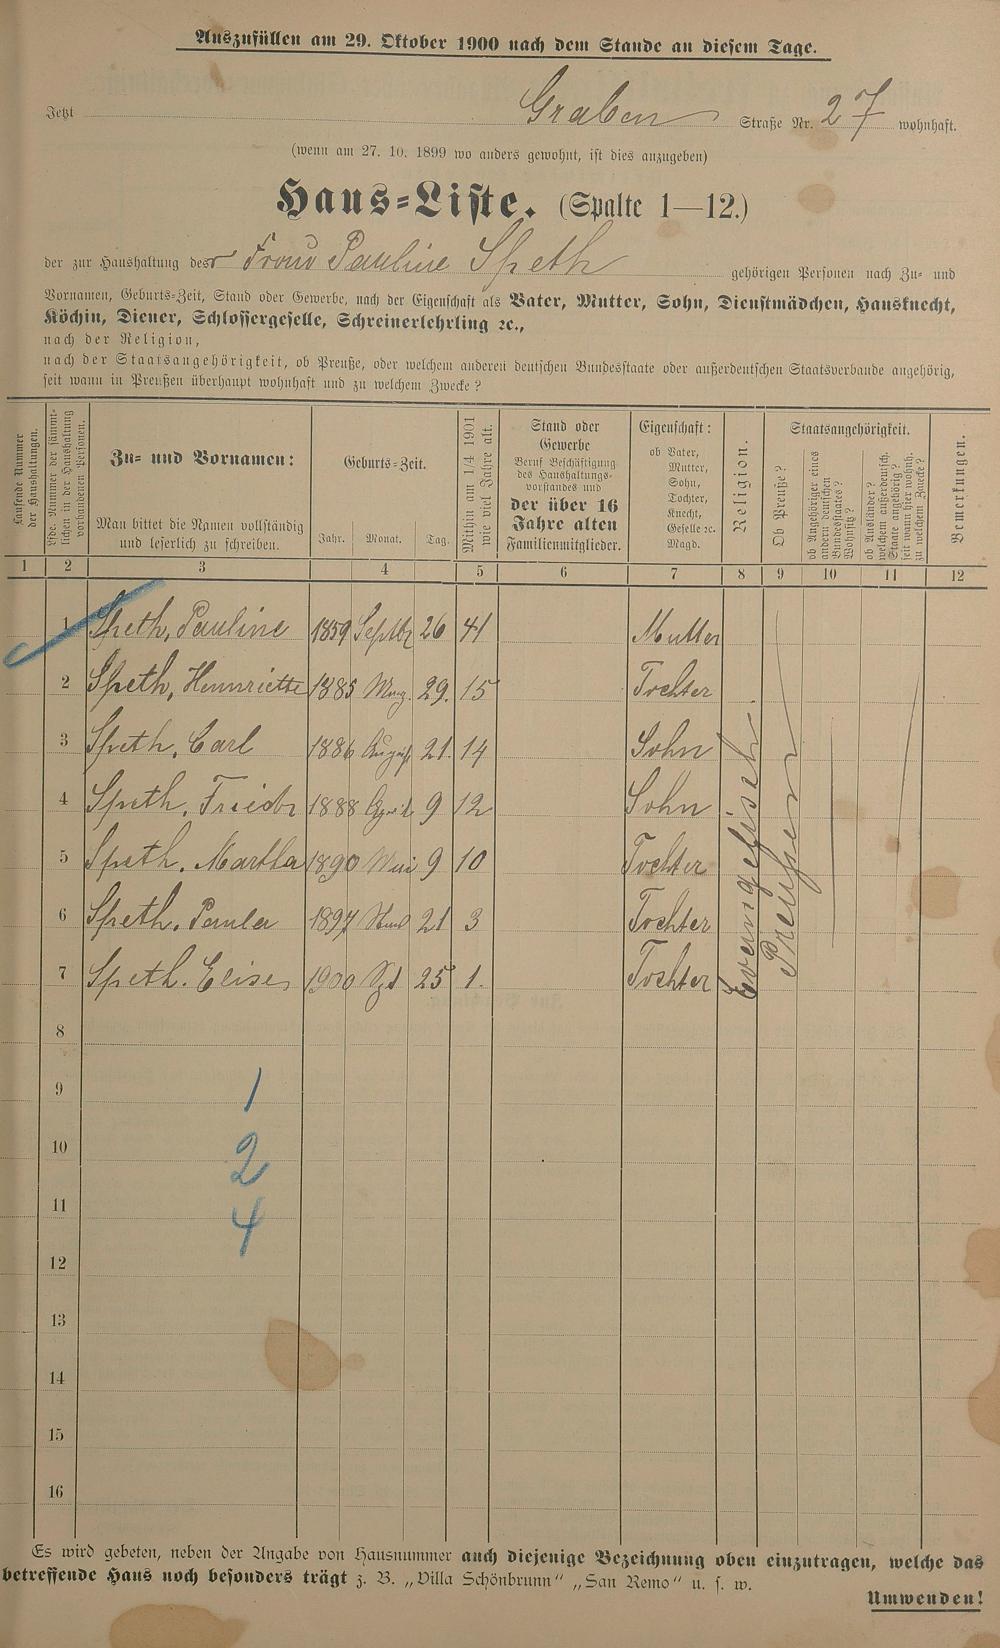 Auszufüllen am 29. Oktober 1900 nach dem Stande an diesem Tage.
Jetzt Graben Straße Nr. 27 wohnhaft.
(wenn am 27. 10. 1899 wo anders gewohnt, ist dies anzugeben)
Haus-Liste. (Spalte 1—12.)
der zur Haushaltung des r Frau Pauline Speth gehörigen Personen nach Zu- und
Vornamen, Geburts-Zeit, Stand oder Gewerbe, nach der Eigenschaft als Vater, Mutter, Sohn, Dienstmädchen, Hausknecht,
Köchin, Diener, Schlossergeselle, Schreinerlehrling ꝛc.,
nach der Religion,
nach der Staatsangehörigkeit, ob Preuße, oder welchem anderen deutschen Bundesstaate oder außerdeutschen Staatsverbande angehörig,
seit wann in Preußen überhaupt wohnhaft und zu welchem Zwecke?
Laufende Nummer
der Haushaltungen.
Lfde. Nummer der sämmt-
lichen in der Haushaltung
vorhandenen Personen.
Zu- und Vornamen:
Man bittet die Namen vollständig
und leserlich zu schreiben.
Geburts-Zeit.
Jahr. Monat. Tag.
Mithin am 1/4 1901
wie viel Jahre alt.
Stand oder
Gewerbe
Beruf Beschäftigung
des Haushaltungs-
vorstandes und
der über 16
Jahre alten
Familienmitglieder.
Eigenschaft:
ob Vater,
Mutter,
Sohn,
Tochter,
Knecht,
Geselle ꝛc.
Magd.
Religion.
Staatsangehörigkeit.
Ob Preuße?
ob Angehöriger eines
andern deutschen
Bundesstaates?
Wohnsitz?
ob Ausländer?
welchem außerdeutsch.
Staate angehörig?
seit wann hier wohnh.
zu welchem Zwecke?
Bemerkungen.
1 2 3 4 5 6 7 8 9 10 11 12
1 Speth, Pauline 1859 Septbr 26 41 Mutter
2 Speth, Hennriette 1885 29. 15 Tochter
3 Speth, Carl 1886 August 21. 14 Sohn
4 Speth, Friedr 1888 April 9 12 Sohn
5 Speth, Martha 1890 Mai 9 10 Tochter
6 Speth, Paula 1897 21 3 Tochter
7 Speth. Elise 1900 25 1. Tochter
Evangelisch.
Preußen
8
9
10
11
12
13
14
15
16
1
2
4
Es wird gebeten, neben der Angabe von Hausnummer auch diejenige Bezeichnung oben einzutragen, welche das
betreffende Haus noch besonders trägt z. B. „Villa Schönbrunn“ „San Remo“ u. s. w.
Umwenden!